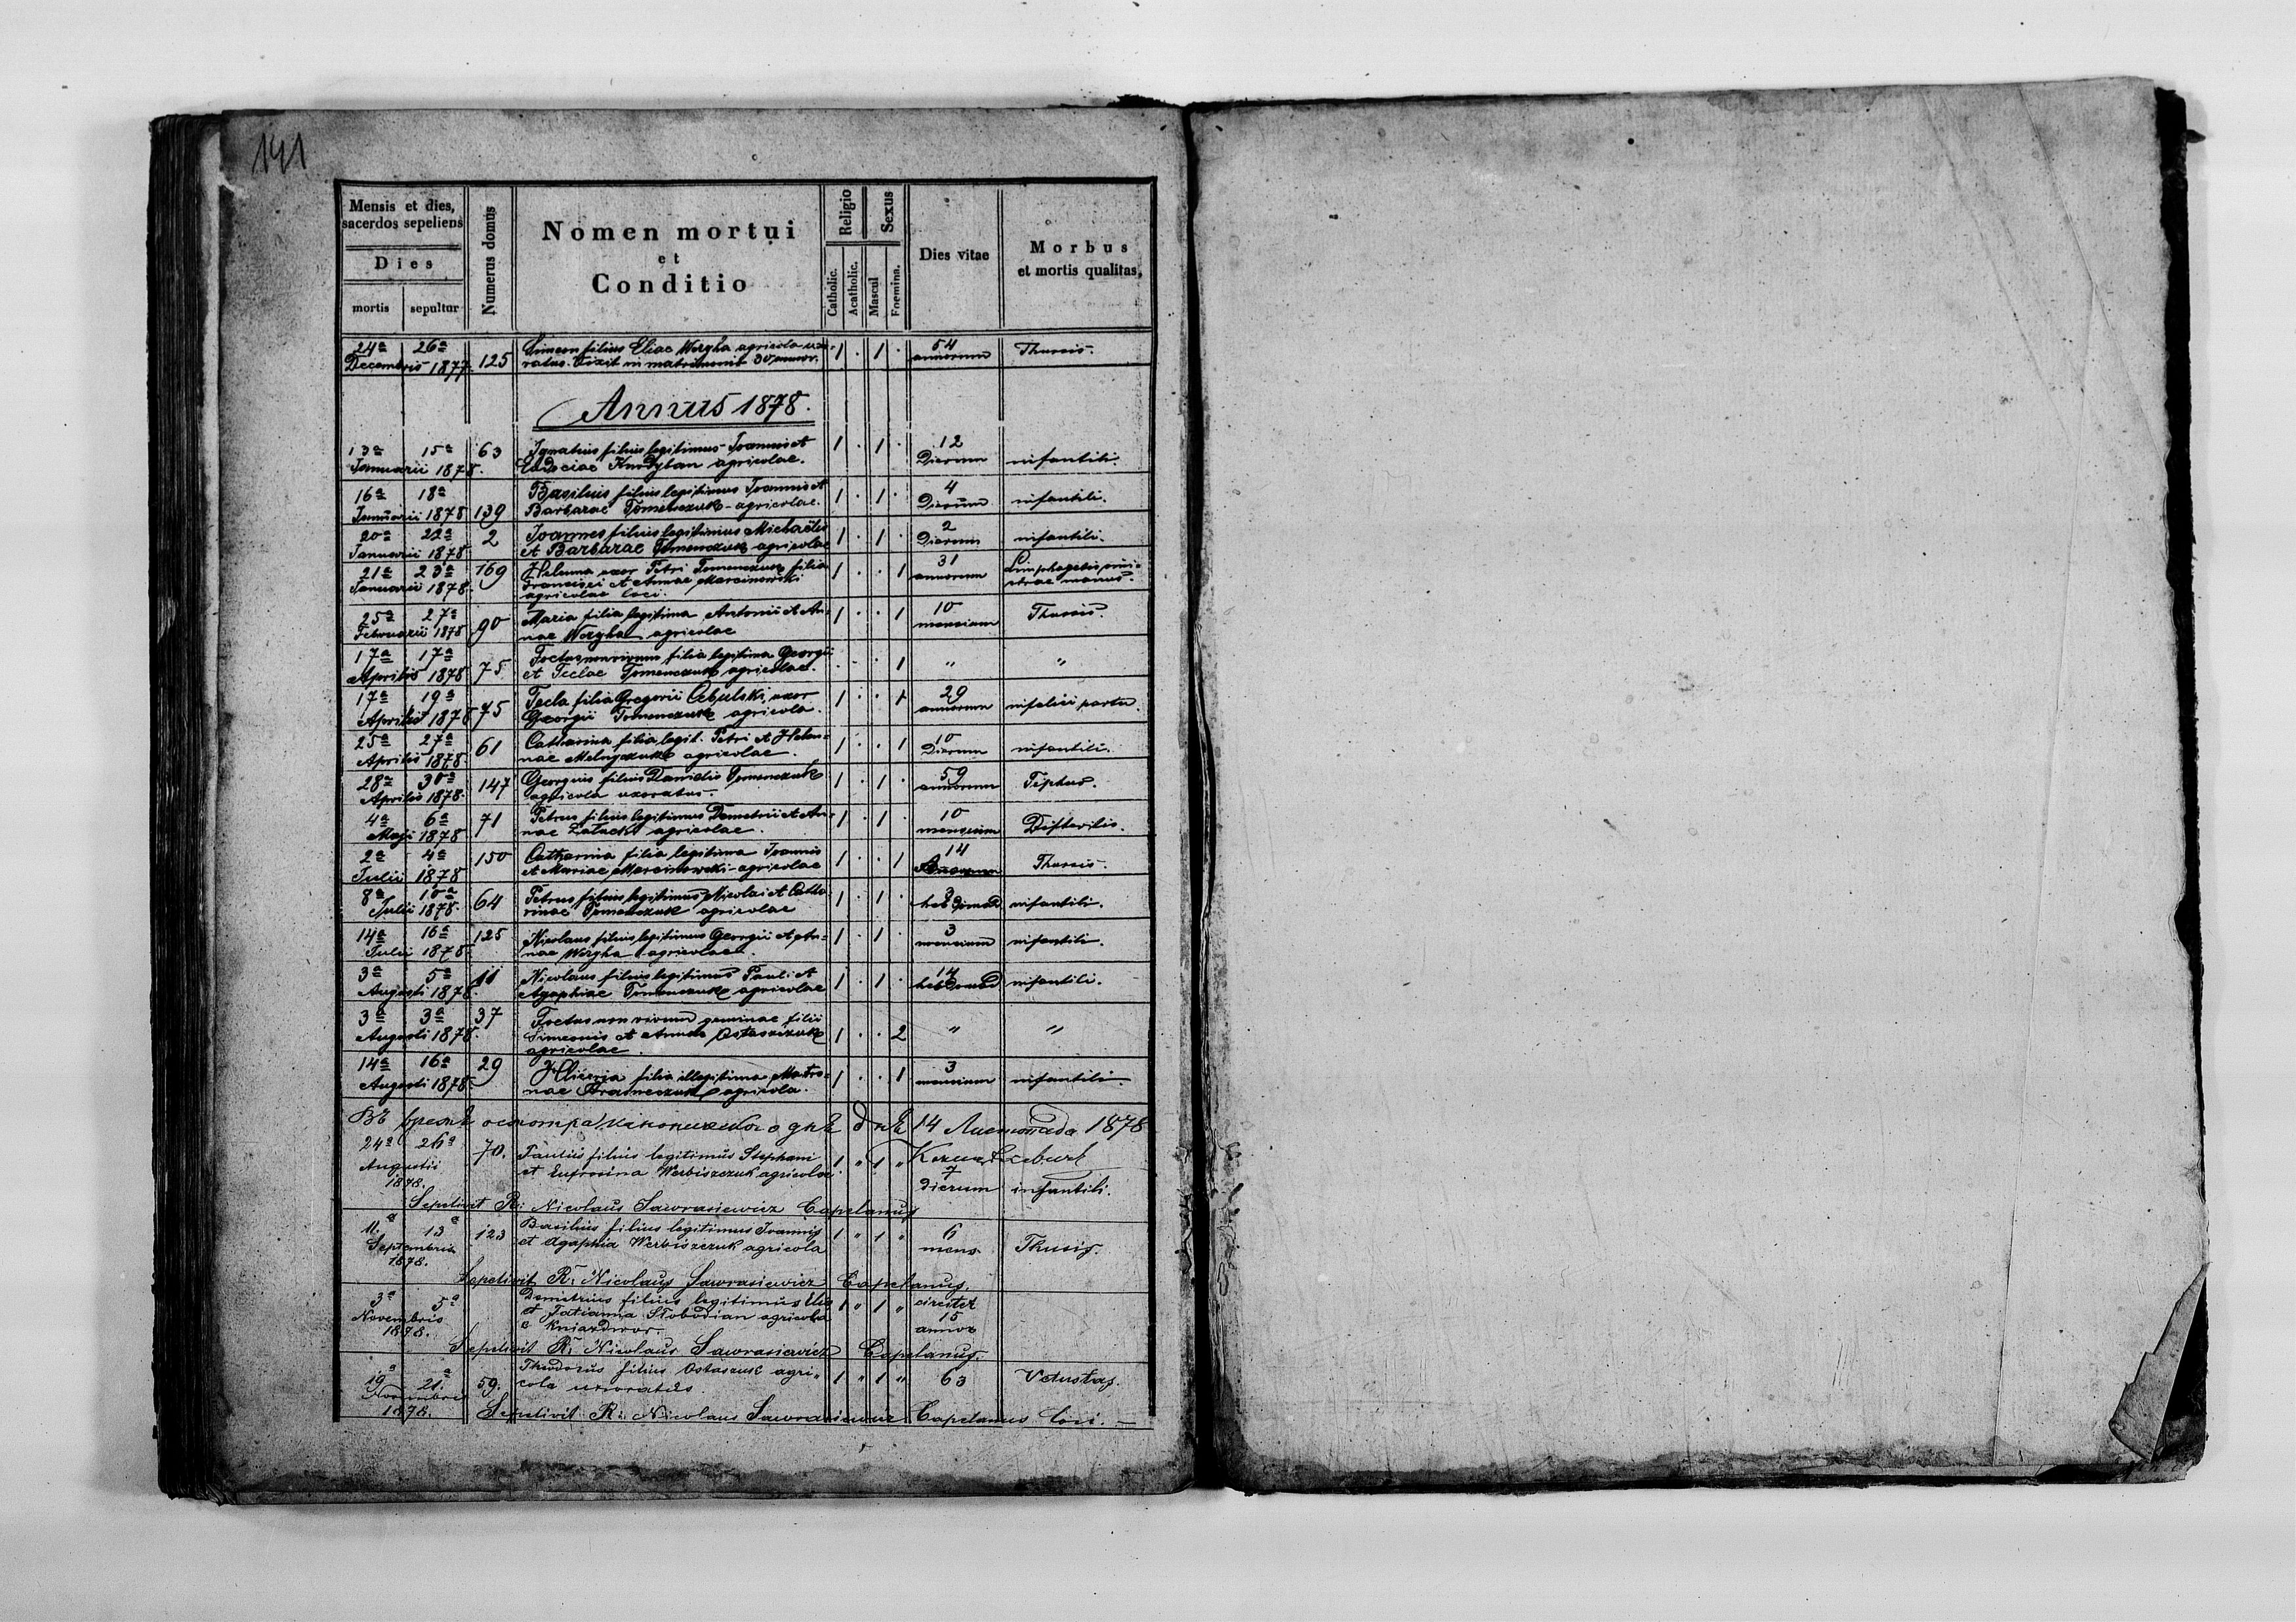 141
Mensis et dies, sacerdos sepeliens
Dies
mortis sepultur
Numerus domus
Nomen mortui
et
Conditio
Religio
Catholic. Acatholic.
Sexus
Mascul Foemina.
Dies vitae
Morbus
et mortis qualitas,
24a 26a Simeon filius Eliae Worgha agricola uxo- 54
Decembris 1877. 125 ratus. Vixit in matrimonio 30 annor. 1 . 1 . annorum Thussis.
Annus 1878.
13a 15a 63 Ignatius filius legitimus Joannis et 1 . 1 . 12
Januarii 1878. agricolae. Dierum infantili.
16a 18a Basilius filius legitimus Joannis et 1 . 1 . 4
Januarii 1878 139 Barbarae Tomenczuk - agricolae. Dierum infantili.
20a 22a 2 Joannes filius legitimus Michaelis 1 . 1 . 2
Januarii 1878 et Barbarae Tomenczuk agricolae Dierum infantili.
21a 23a 169 Helenna uxor Petri Tomenczuk filia 1 . . 1 31
Januarii 1878. Francisci et Annae Marcinowski annorum manus.
agricolae loci.
25a 27a Maria filia legitima Antonii et An- 1 . . 1 10 Thussis.
Februarii 1878 90 nae Worgha agricolae mensium
17a 17a Foetus non vivus filia legitima Georgii . . . 1 " "
Aprilis 1878 75 et Teclae Tomenczuk agricolae.
17a 19a Tecla filia Gregorii Cebulski, uxor 1 . . 1 29
Aprilis 1878 75 Georgii Tomenczuk agricola. annorum infelici partu.
25a 27a 61 Catharina filia legit. Petri et Helen- 1 . . 1 10
Aprilis 1878. nae Melnyczuk agricolae. Dierum infantili.
28a 30a 147 Georgius filius Danielis Tomenczuk 1 . 1 . 59 Tiphus.
Aprilis 1878. agricola uxoratus. annorum
4a 6a 71 Petrus filius legitimus Demetrii et An- 1 . 1 . 10
Maji 1878 nae agricolae. mensium Difteritis.
2a 4a 150 Catharina filia legitima Joannis 1 . . 1 14 Thussis.
Julii 1878 et Mariae Marcinowski - agricolae
8a 10a 64 Petrus filius legitimus Nicolai et Catha- 1 . 1 . 3
Julii 1878. rinae Tomenczuk agricolae hebdomad infantili.
14a 16a 125 Nicolaus filius legitimus Georgii et An- 1 . 1 . 3
Julii 1878. nae Worgha agricolae. mensium infantili.
3a 5a 11 Nicolaus filius legitimus Pauli et 1 . 1 . 14
Augusti 1878. Agaphiae Tomenczuk agricolae hebdomad infantili.
3a 3a 37 Foetus non vivum geminae filii
Augusti 1878. Simeonis et Annae Ostaszczuk 1 . . 2 " "
agricolae.
14a 16a 29 filia illegitima Matro- 1 . . 1 3
Augusti 1878. nae agricola. mensium infantili.
Въ время осмотра дня 14 Листопада 1878
24a 26a 70. Paulus filius legitimus Stephani 1 " 1 "
Augustii et Eufrosina Werbiszczuk agricolae 7
1878. dierum infantili.
Sepelivit R: Nicolaus Sawrasiewicz Capelanus
11a 13a 123 Basilius filius legitimus Joannis 1 " 1 " 6
Septembris et Agaphia Werbiszczuk agricola mens. Thusis.
1878.
Sepelivit R: Nicolaus Sawrasiewicz Capelanus.
3a 5a Demetrius filius legitimus Elie 1 " 1 " circiter
Novembris et Tatianna Slobodian agricola 15
1878. e Kniazdwor. annor
Sepelivit R: Nicolaus Sawrasiewicz Capelanus.
19a 21a 59. Theodorus filius Ostaszuk agri- 1 " 1 " 63 Vetustas.
Novembris cola uxoratus.
1878. Sepelivit R: Nicolaus Sawrasiewicz Capelanus loci. —